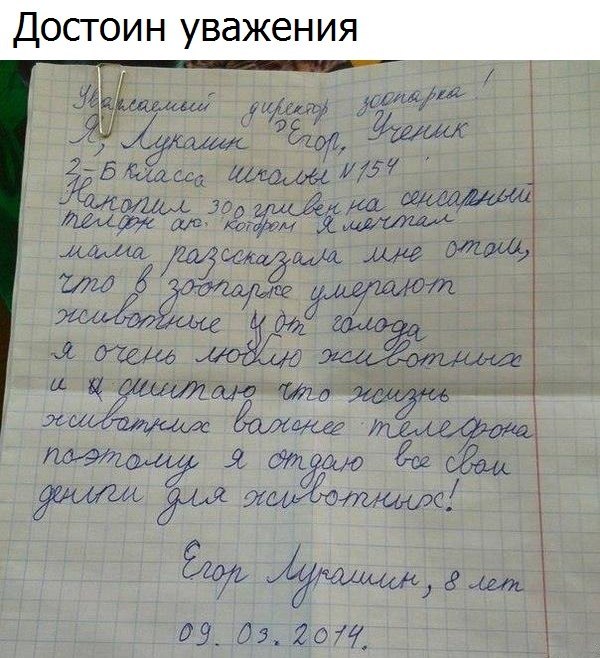 Достоин уважения
Уважаемый директор зоопарка!
Я, Лукашин Егор, Ученик
2-Б класса школы №154
Накопил 300 гривен на сенсарный
телфон аю котором я мечтал
мама разсказала мне отом,
что в зоопарке умерают
животные у от голода
я очень люблю животных
и я сшитаю что жизнь
животних важнее телефона
поэтому я отдаю все свои
деньги для животных!
Егор Лукашин, 8 лет
09.03.2014.